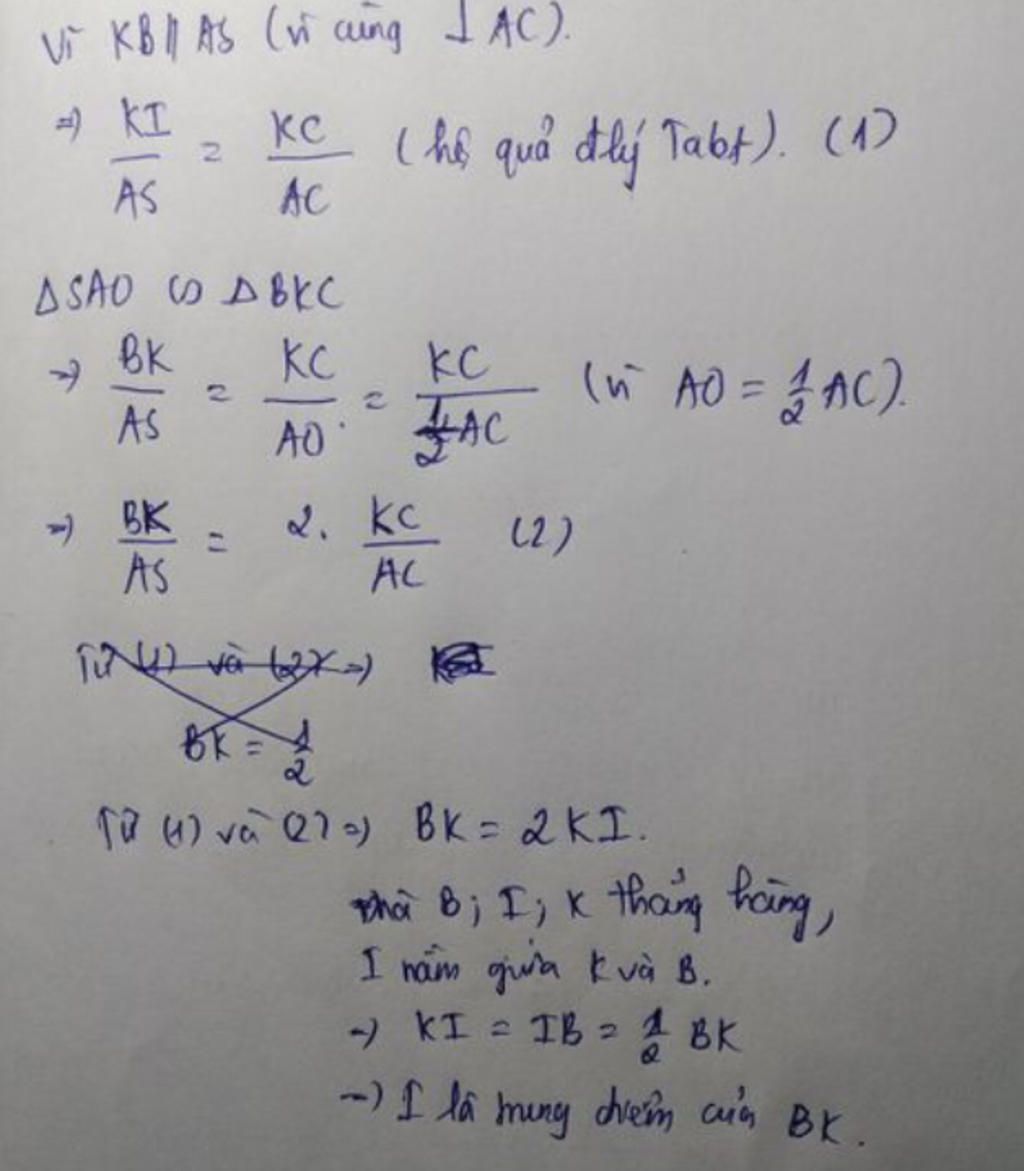 Vì KB // AS (vì cùng ⊥ AC).
⇒ KI/AS = KC/AC (hệ quả đlý Talet). (1)
ΔSAO ∽ ΔBKC
⇒ BK/AS = KC/AO = KC/(1/2 AC) (vì AO = 1/2 AC).
⇒ BK/AS = 2. KC/AC (2)
Từ (1) và (2) ⇒
BK = 1/2
Từ (1) và (2) ⇒ BK = 2KI.
mà B; I; K thẳng hàng,
I nằm giữa K và B.
⇒ KI = IB = 1/2 BK
⇒ I là trung điểm của BK.